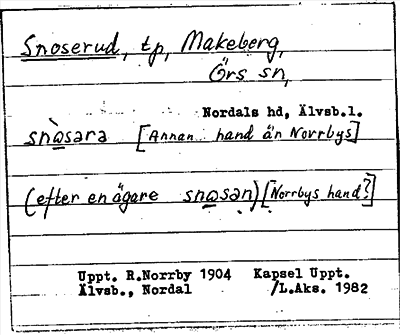 Snoserud, tp, Makeberg,
Örs sn,
Nordals hd, Älvsb.l.
snɷ̀sara [Annan hand än Norrbys]
(efter en ägare snɷsan) [Norrbys hand?]
Uppt. R.Norrby 1904 Kapsel Uppt.
Älvsb., Nordal /L.Aks. 1982